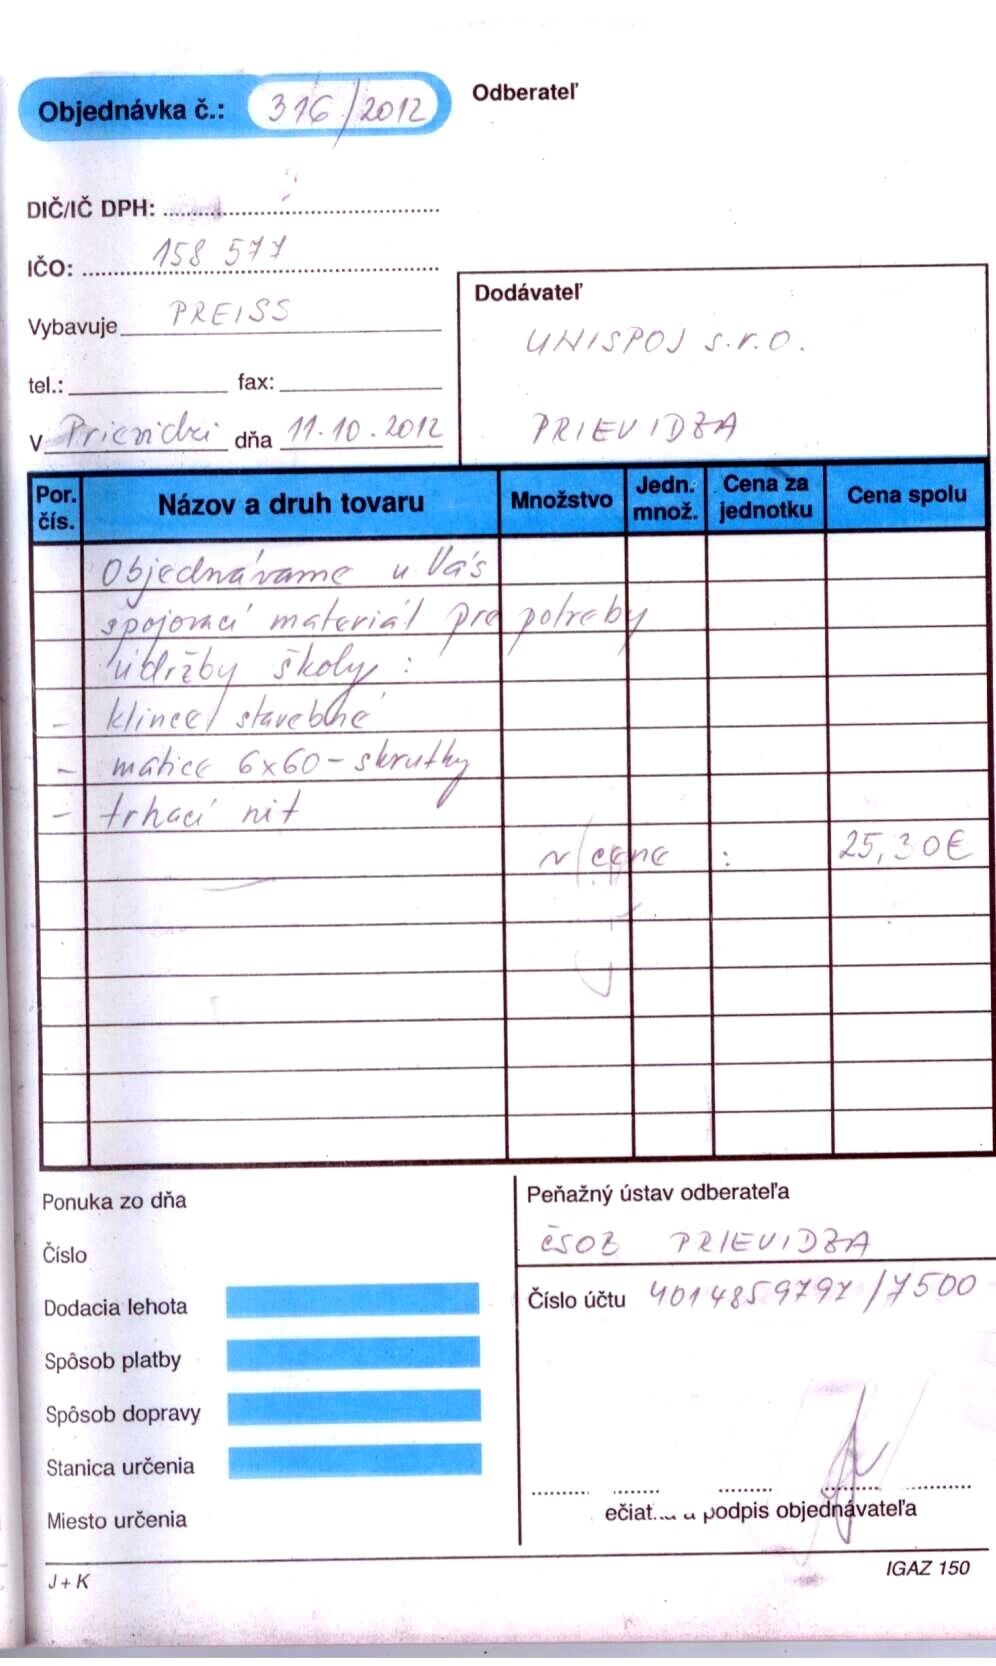 Objednávka č.: 316/2012
Odberateľ
DIČ/IČ DPH:
IČO: 158 577
Vybavuje PREISS
tel.: fax:
V Prievidzi dňa 11.10.2012
Dodávateľ
UNISPOJ s.r.o.
PRIEVIDZA
Por. čís. Názov a druh tovaru Množstvo Jedn. množ. Cena za jednotku Cena spolu
Objednávame u Vás
spojovací materiál pre potreby
údržby školy:
- klince stavebné
- matice 6x60 - skrutky
- trhací nit
v cene : 25,30€
Ponuka zo dňa
Číslo
Dodacia lehota
Spôsob platby
Spôsob dopravy
Stanica určenia
Miesto určenia
Peňažný ústav odberateľa
ČSOB PRIEVIDZA
Číslo účtu 4014859797/7500
ečiat... a podpis objednávateľa
J + K
IGAZ 150